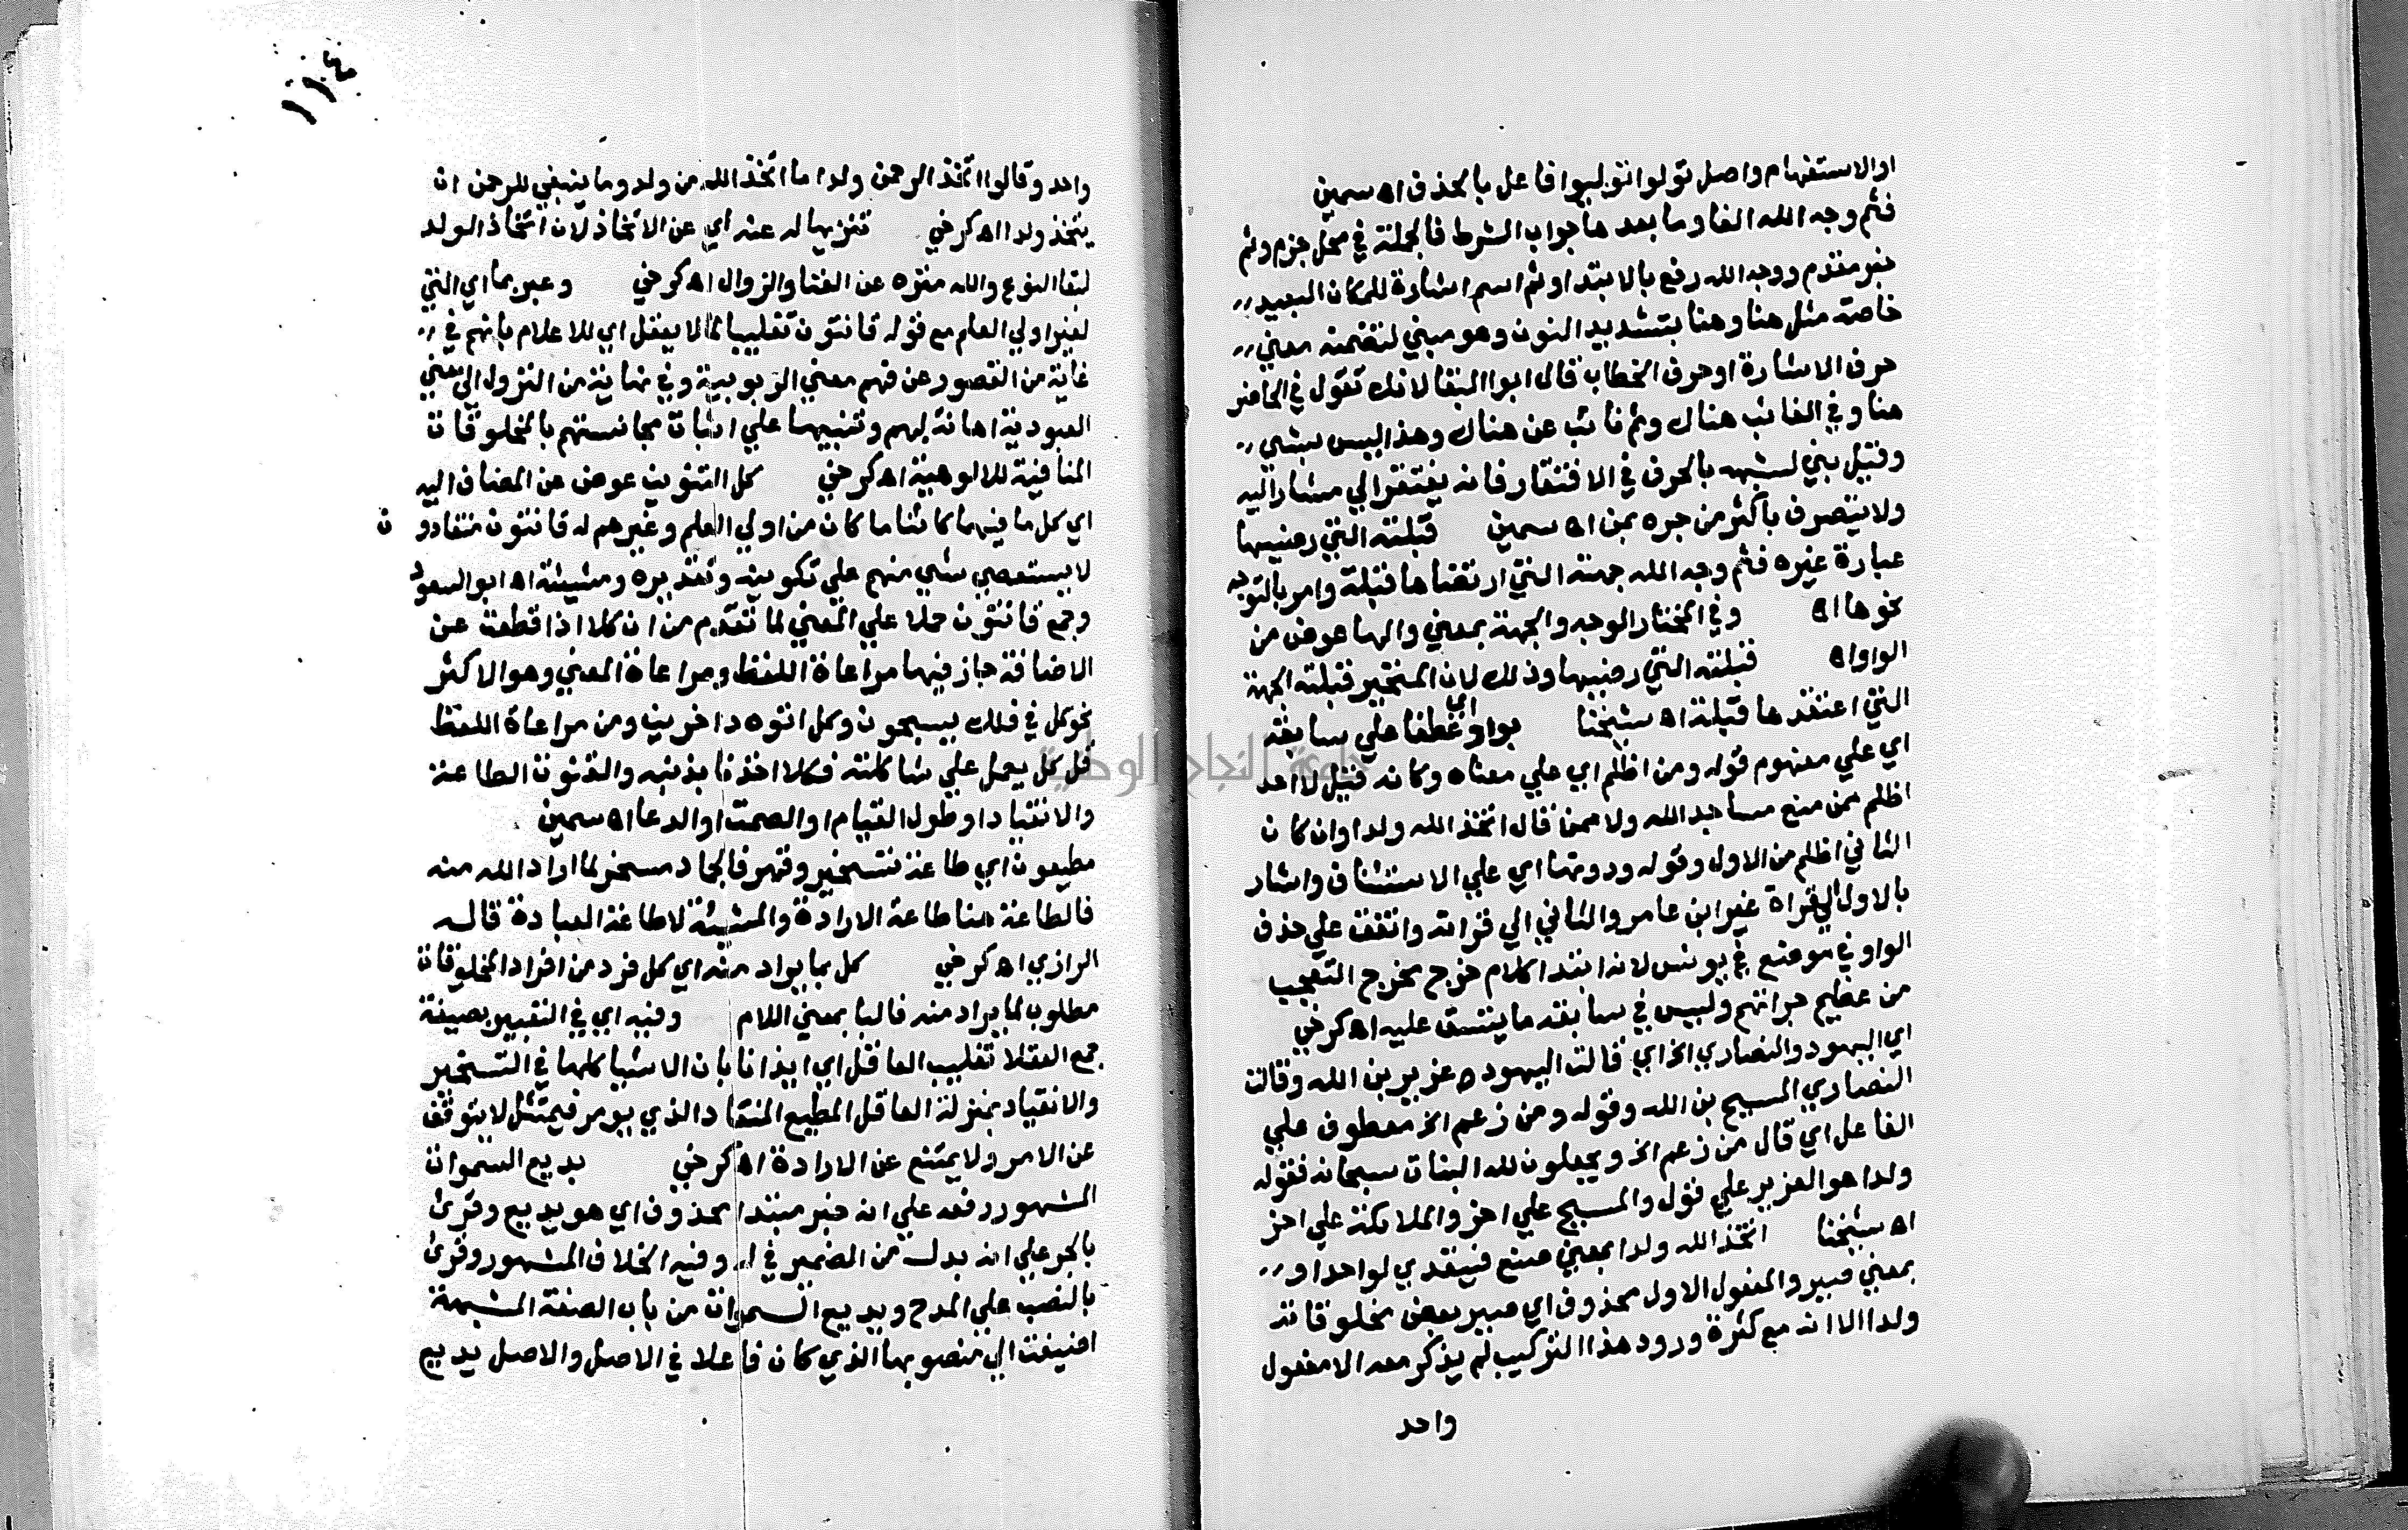 او الاستفهام واصل تولوا توليوا فاعل بالحذف اه سمين
فثم وجه الله الفا وما بعدها جواب الشرط فالجملة في محل جزم وثم
خبر مقدم ووجه الله رفع بالابتدا وثم اسم اشارة للمكان البعيد
خاصة مثل هنا وهنا بتشديد النون وهو مبني لتضمنه معني
حرف الاشارة او حرف الخطاب قال ابوا البقا لانك تقول في الحاضر
هنا وفي الغائب هناك وثم نائب عن هناك وهذا ليس بشي
وقيل بني لشبهه بالحرف في الافتقار فانه يفتقر الي مشار اليه
ولا يتصرف باكثر من جره بمن اه سمين قبلته التي رضيها
عبارة غيره فثم وجه الله جهته التي ارتضاها قبلة وامر بالتوجه
نحوها اه وفي المختار الوجه والجهة بمعني والها عوض من
الواو اه قبلته التي رضيها وذلك لان المتحير قبلته الجهة
التي اعتقدها قبلة اه شيخنا بواو اي عطفا علي سابقه
اي علي مفهوم قوله ومن اظلم اي علي معناه وكانه قيل لا احد
اظلم ممن منع مساجد الله ولا ممن قال اتخذ الله ولدا وان كان
الثاني اظلم من الاول وقوله ودونها اي علي الاستئناف واشار
بالاول الي قراة غير ابن عامر والثاني الي قراته واتفق علي حذف
الواو في موضع في يونس لانه ابتدا كلام خرج مخرج التعجب
من عظيم جراتهم وليس في سابقه ما ينسق عليه اه كرخي
اي اليهود والنصاري الخ اي قالت اليهود عزير بن الله وقالت
النصاري المسيح بن الله وقوله ومن زعم الخ معطوف علي
الفاعل اي قال من زعم الخ ويجعلون لله البنات سبحانه فقوله
ولدا هو العزير علي قول والمسيح علي اخر والملائكة علي اخر
اه شيخنا اتخذ الله ولدا بمعني صنع فيتعدي لواحد او
بمعني صير والمفعول الاول محذوف اي صير بعض مخلوقاته
ولدا الا انه مع كثرة ورود هذا التركيب لم يذكر معه الا مفعول
واحد
١١٤
واحد وقالوا اتخذ الرحمن ولدا ما اتخذ الله من ولد وما ينبغي للرحمن ان
يتخذ ولدا اه كرخي تنزيها له عنه اي عن الاتخاذ لان اتخاذ الولد
لبقا النوع والله منزه عن الفنا والزوال اه كرخي وعبر بما اي التي
لغير اولي العلم مع قوله قانتون تغليبا لما لا يعقل اي للاعلام بانهم في
غاية من القصور عن فهم معني الربوبية وفي نهاية من النزول الي معني
العبودية اهانة لهم وتنبيها علي اثبات مجانستهم بالمخلوقات
المنافية للالوهية اه كرخي كل التنوين عوض عن المضاف اليه
اي كل ما فيهما كائنا ما كان من اولي العلم وغيرهم له قانتون منقادون
لا يستعصي شي منهم علي تكوينه وتقديره ومشيئته اه ابو السعود
وجمع قانتون حملا علي المعني لما تقدم من ان كلا اذا قطعت عن
الاضافة جاز فيها مراعاة اللفظ ومراعاة المعني وهو الاكثر
نحو كل في فلك يسبحون وكل اتوه داخرين ومن مراعاة اللفظ
قل كل يعمل علي شاكلته فكلا اخذنا بذنبه والقنوت الطاعة
والانقياد او طول القيام او الصمت او الدعا اه سمين
مطيعون اي طاعة تسخير وقهر فالجماد مسخر لما اراد الله منه
فالطاعة هنا طاعة الارادة والمشيئة لا طاعة العبادة قاله
الرازي اه كرخي كل بما يراد منه اي كل فرد من افراد المخلوقات
مطلوب لما يراد منه فالبا بمعني اللام وفيه اي في التعبير بصيغة
جمع العقلا تغليب العاقل اي ايذانا بان الاشيا كلها في التسخير
والانقياد بمنزلة العاقل المطيع المنقاد الذي يومر فيمتثل لا يتوقف
عن الامر ولا يمتنع عن الارادة اه كرخي بديع السموات
المشهور رفعه علي انه خبر مبتدا محذوف اي هو بديع وقرئ
بالجر علي انه بدل من الضمير في له وفيه الخلاف المشهور وقرئ
بالنصب علي المدح وبديع السموات من باب الصفة المشبهة
اضيفت الي منصوبها الذي كان فاعلا في الاصل والاصل بديع
جامعة النجاح الوطنية